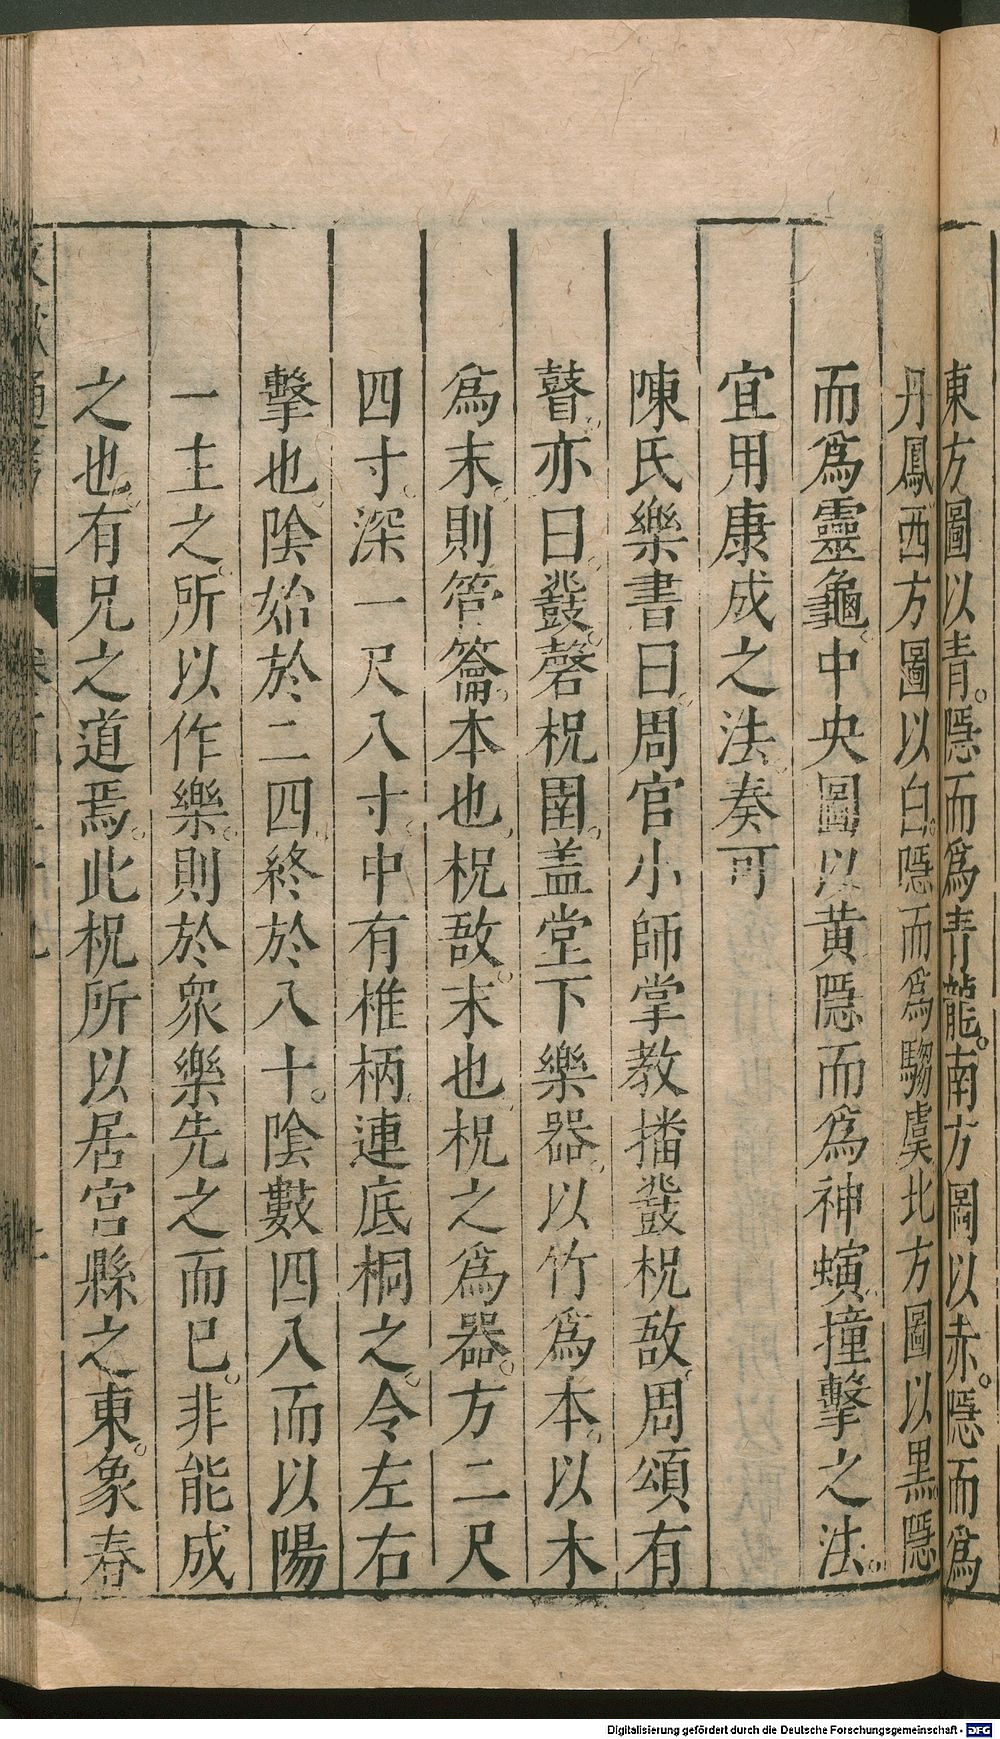 東方圖以青。隱而爲青龍。南方圖以赤。隱而爲
丹鳳。西方圖以白。隱而爲騶虞。北方圖以黑。隱
而爲靈龜。中央圖以黄。隱而爲神螾。撞擊之法。
宜用康成之法。奏可
陳氏樂書曰。周官小師掌教播鼗柷敔。周頌有
瞽。亦曰鼗磬柷圉。盖堂下樂器。以竹爲本。以木
爲末。則管籥。本也。柷敔。末也。柷之爲器。方二尺
四寸。深一尺八寸。中有椎柄。連底桐之。令左右
擊也。陰始於二四。終於八十。陰數四八而以陽
一主之。所以作樂。則於衆樂先之而已。非能成
之也。有兄之道焉。此柷所以居宫縣之東。象春
文獻通考
Digitalisierung gefördert durch die Deutsche Forschungsgemeinschaft - DFG